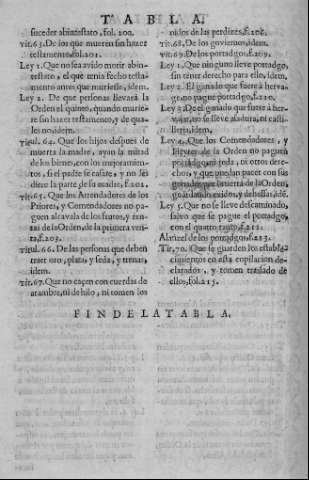 TABLA.
suceder abintestato, fol. 200.
tit. 63. De los que mueren sin hazer
testamento, fol. 201.
Ley 1. Que no sea avido morir abin-
testato, el que tenia fecho testa
mento antes que muriesse, idem.
Ley 2. De que personas llevará la
Orden el quinto, quando murie-
re sin hazer testamento, y de qua-
les no, idem.
titul. 64. Que los hijos despues de
muerta la madre, ayan la mitad
de los bienes, con los mejoramien-
tos, si el padre se casare, y no les
diere la parte de su madre, f. 202.
tit. 65. Que los Arrendadores de los
Priores, y Comendadores no pa-
guen alcavala de los frutos, y ren-
tas de la Orden, de la primera ven-
ta, f. 203.
titul. 66. De las personas que deben
traer oro, plata, y seda, y trenas,
idem.
tit. 67. Que no caçen con cuerdas de
arambre, ni de hilo, ni tomen los
nidos de las perdizes, f. 208.
tit. 68. De los goviernos, idem.
tit. 69. De los portadgos, f. 209.
Ley 1. Que ninguno lleve portadgo,
sin tener derecho para ello, idem.
Ley 2. El ganado que fuere a hervage,
no pague portadgo, f. 210.
Ley 3. Del ganado que fuere a her-
vage, no se lleve assadura, ni casti
lleria, idem.
Ley 4. Que los Comendadores, y
de la Orden no paguen
portadgo, ni renta, ni otros dere-
chos, y que puedan pacer con sus
ganados la tierra de la Orden,
exidos, y dehessas, idem.
Ley 5. Que no se lleve descaminado,
salvo que se pague el portadgo,
con el quatro tanto, f. 212.
Alanzel de los portadgos, f. 213.
Tit. 70. Que se guarden los establecimientos
en esta copilacion de-
clarados, y tomen traslado de
ellos, fol. 215.
FIN DE LA TABLA.